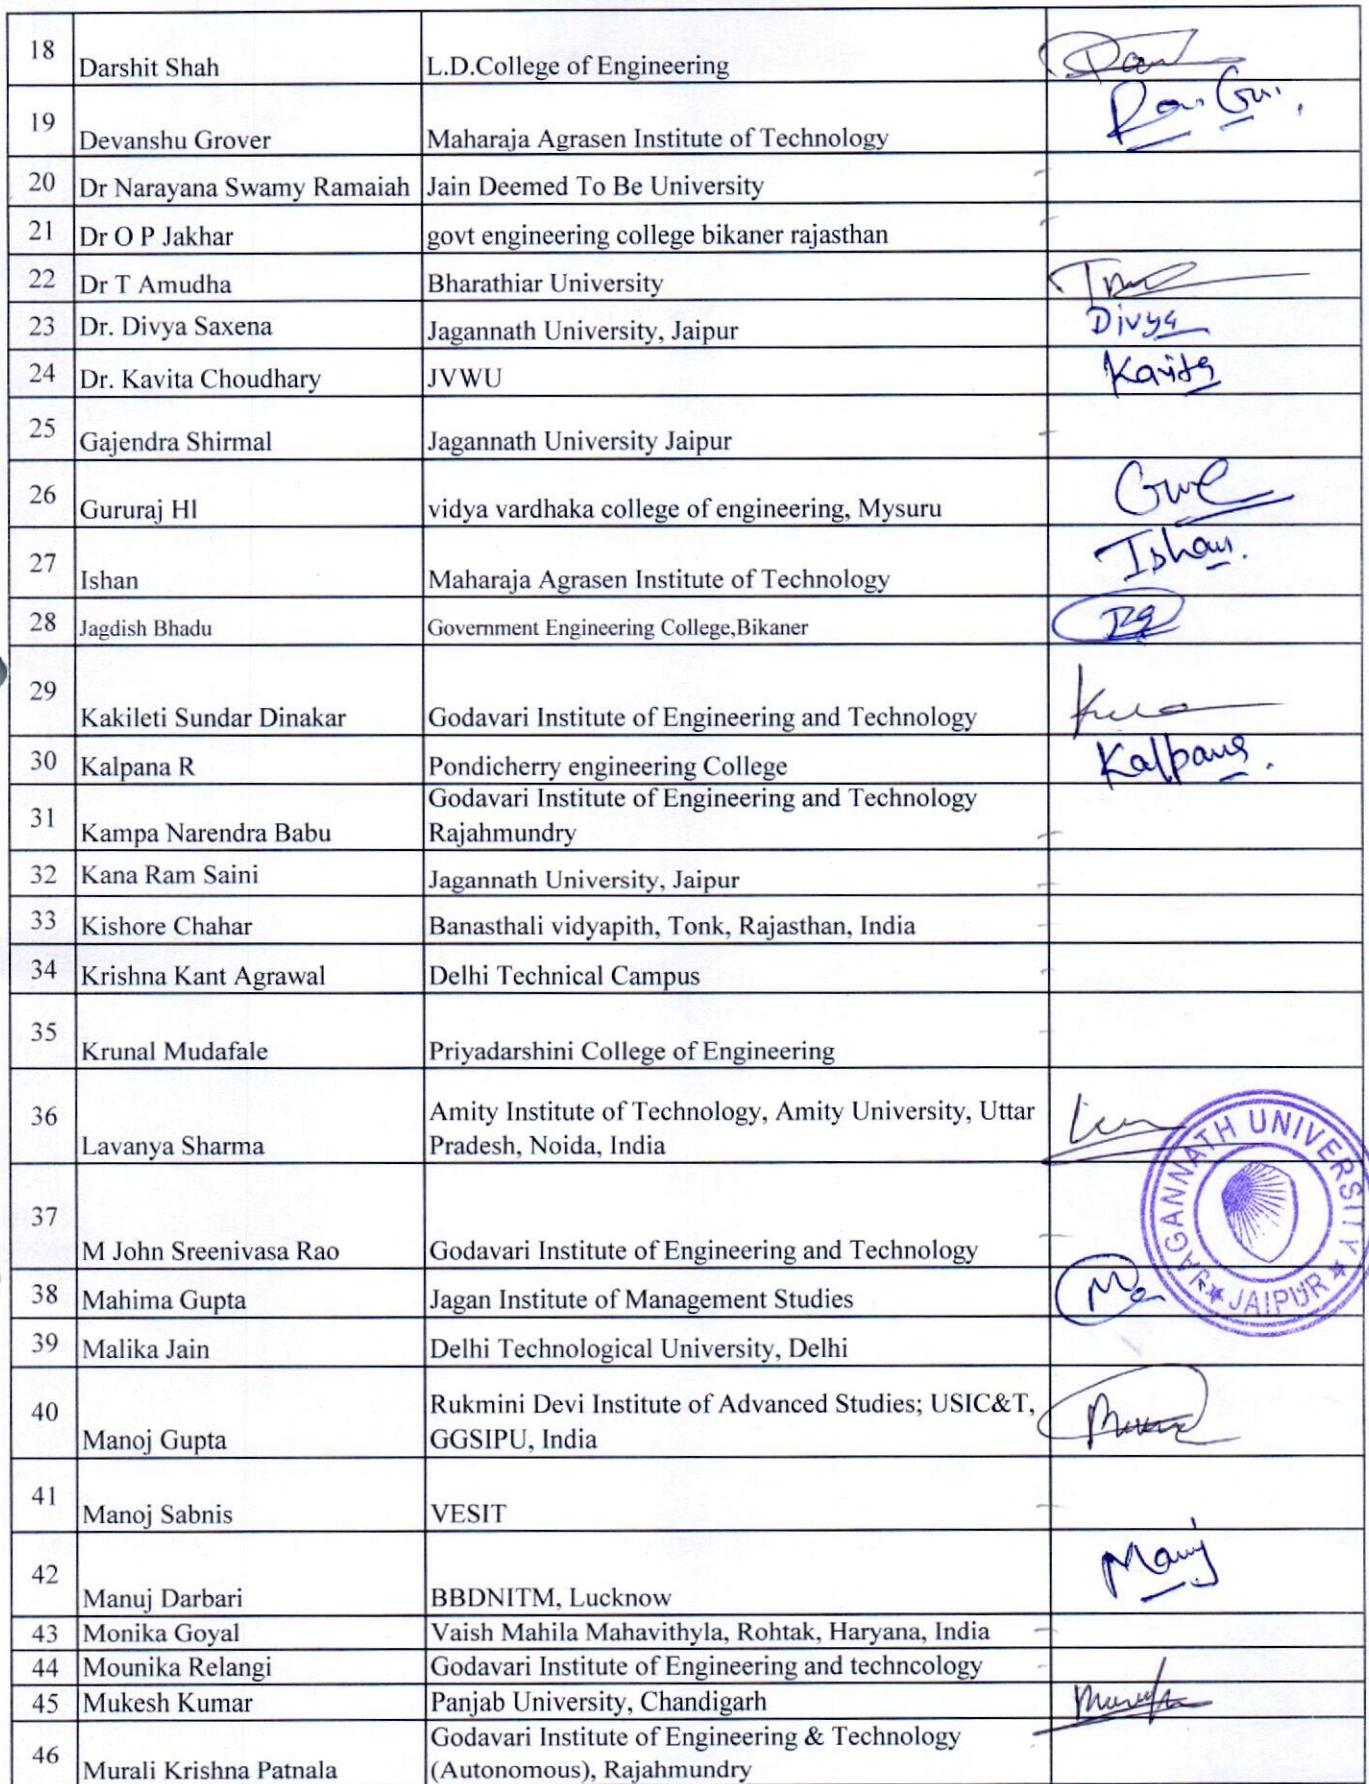 18 Darshit Shah L.D.College of Engineering
19 Devanshu Grover Maharaja Agrasen Institute of Technology
20 Dr Narayana Swamy Ramaiah Jain Deemed To Be University
21 Dr O P Jakhar govt engineering college bikaner rajasthan
22 Dr T Amudha Bharathiar University
23 Dr. Divya Saxena Jagannath University, Jaipur Divya
24 Dr. Kavita Choudhary JVWU Kavita
25 Gajendra Shirmal Jagannath University Jaipur
26 Gururaj Hl vidya vardhaka college of engineering, Mysuru
27 Ishan Maharaja Agrasen Institute of Technology Ishan.
28 Jagdish Bhadu Government Engineering College,Bikaner
29 Kakileti Sundar Dinakar Godavari Institute of Engineering and Technology
30 Kalpana R Pondicherry engineering College Kalpana.
31 Kampa Narendra Babu Godavari Institute of Engineering and Technology
Rajahmundry
32 Kana Ram Saini Jagannath University, Jaipur
33 Kishore Chahar Banasthali vidyapith, Tonk, Rajasthan, India
34 Krishna Kant Agrawal Delhi Technical Campus
35 Krunal Mudafale Priyadarshini College of Engineering
36 Lavanya Sharma Amity Institute of Technology, Amity University, Uttar
Pradesh, Noida, India
JAGANNATH UNIVERSITY
JAIPUR
37 M John Sreenivasa Rao Godavari Institute of Engineering and Technology
38 Mahima Gupta Jagan Institute of Management Studies
39 Malika Jain Delhi Technological University, Delhi
40 Manoj Gupta Rukmini Devi Institute of Advanced Studies; USIC&T,
GGSIPU, India
41 Manoj Sabnis VESIT
42 Manuj Darbari BBDNITM, Lucknow Manuj
43 Monika Goyal Vaish Mahila Mahavithyla, Rohtak, Haryana, India
44 Mounika Relangi Godavari Institute of Engineering and techncology
45 Mukesh Kumar Panjab University, Chandigarh
46 Murali Krishna Patnala Godavari Institute of Engineering & Technology
(Autonomous), Rajahmundry